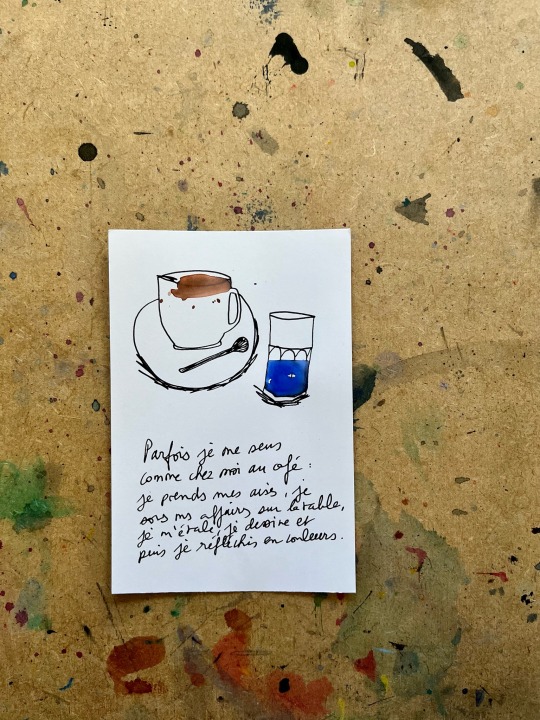 Parfois je me sens
comme chez moi au café :
je prends mes aises, je
sors mes affaires sur la table,
je m'étale, je dessine et
puis je réfléchis en couleurs.